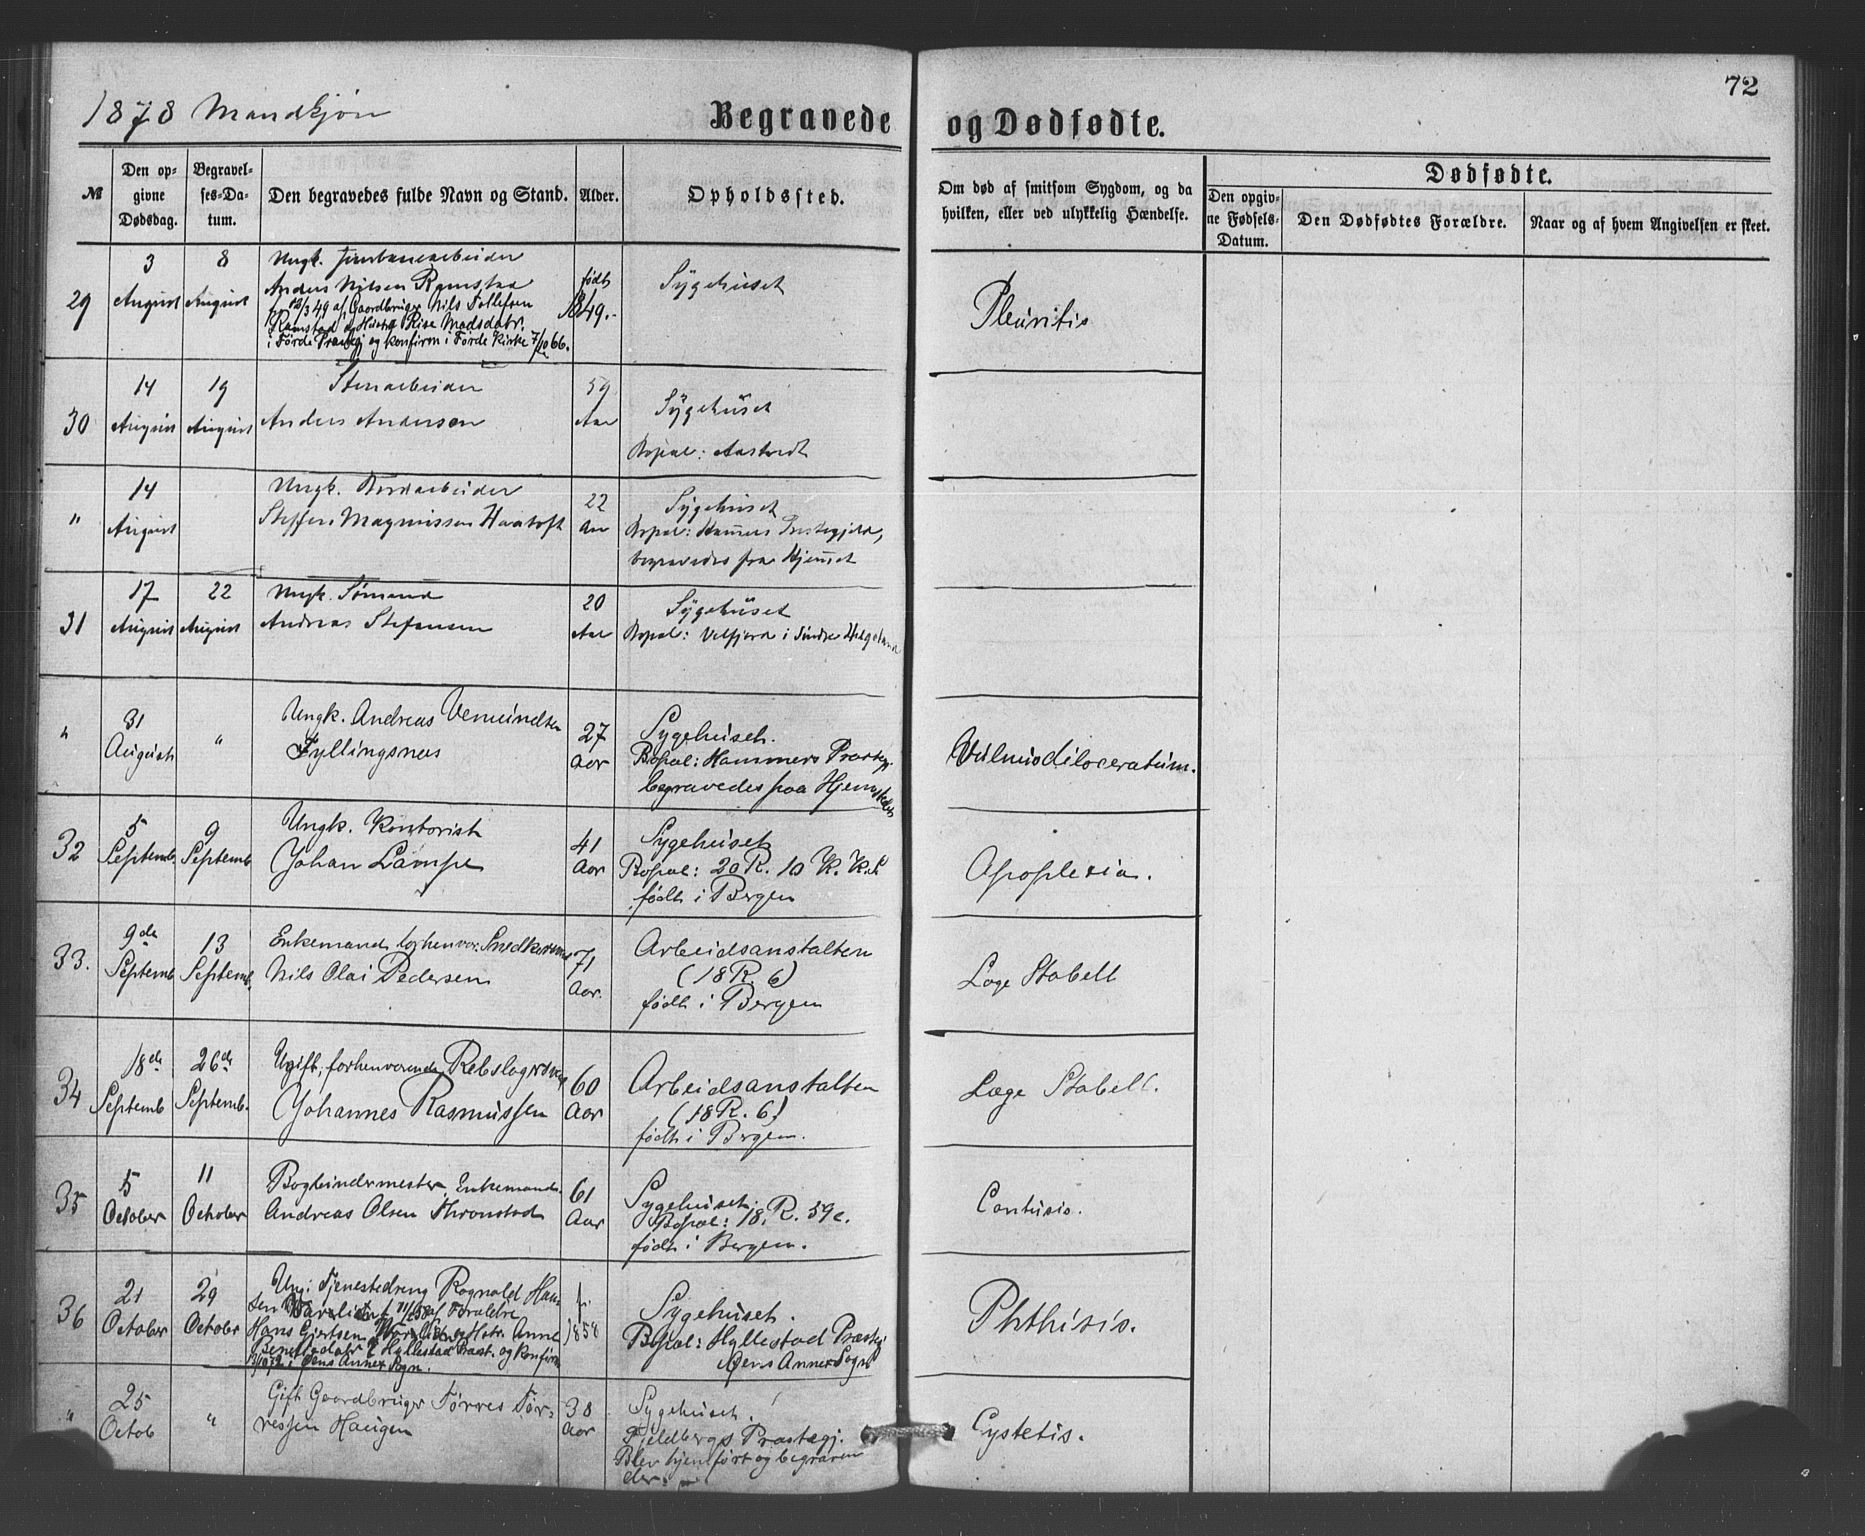 1878 Mandkjøn
Begravede og Dødfødte.
72
№
Den opgivne Dødsdag.
Begravelses-Datum.
Den begravedes fulde Navn og Stand.
Alder.
Opholdssted.
Om død af smitsom Sygdom, og da hvilken, eller ved ulykkelig Hændelse.
Dødfødte.
Den opgivne Fødsels-Datum.
Den Dødfødtes Forældre.
Naar og af hvem Angivelsen er skeet.
29
3 August
8 August
Ungk. Jernbanearbeider
Anders Nilsen Ramstad
f. 12/3 49 af Gaardbruger Nils Tollefsen
Ramstad og Hustru Rise Madsdatr.
i Førde Præstegj og konfirm i Førde Kirke 7/10 66.
født 1849.
Sygehuset
Pleuritis
30
14 August
19 August
Stenarbeider
Anders Andersen
59 Aar
Sygehuset
Bopæl: Aastvedt
"
14 August
Ungk. Jordarbeider
Steffen Magnussen
22 Aar
Sygehuset
Bopæl: Hammers Præstegjeld,
begravedes fra Hjemmet
31
17 August
22 August
Ungk. Sømand
Andreas Stefansen
20 Aar
Sygehuset
Bopæl: Velfjord i Søndre Helgeland
"
31 August
"
Ungk. Andreas Vemundsen
Fyllingsnæs
27 Aar
Sygehuset.
Bopæl: Hammers Præstegj.
begravedes paa Hjemstedet
32
5 Septemb.
9 Septemb
Ungk. Kontorist
Johan Lampe
41 Aar
Sygehuset
Bopæl: 20 R. 10 K.
født i Bergen
Apoplexia.
33.
9de Septemb
13 Septemb.
Enkemand forhenv: Snedkersvend
Nils Olai Pedersen
71 Aar.
Arbeidsanstalten
(18 R. 6)
født i Bergen
Læge Stabell
34
18de Septemb
26de Septemb.
Ugift, forhenværende Rebslagersvend
Johannes Rasmussen
60 Aar
Arbeidsanstalten
(18 R. 6.)
født i Bergen.
Læge Stabell.
35
5 October
11 October
Bogbindermester, Enkemand
Andreas Olsen Thronstad
61 Aar
Sygehuset.
Bopæl: 18. R. 59c.
født i Bergen.
Contusio.
36
21 October
29 Octobr
Ung. Tjenestedreng Rognald Hansen
af Forældre
Hans Gjertsen og Hstr. Anne
Bendtsdatr i Hyllestad Præst. og konfirm
i Øens Annex Sogn.
1858
Sygehuset.
Bopæl: Hyllestad Præstegj
Øens Annex Sogn
Phthisis.
"
25 Octob
"
Gift Gaardbruger Tørres Tørressen Haugen
38 Aar
Sygehuset.
Fjeldbergs Præstegj.
Blev hjemført og begraven
der.
Cystetis.